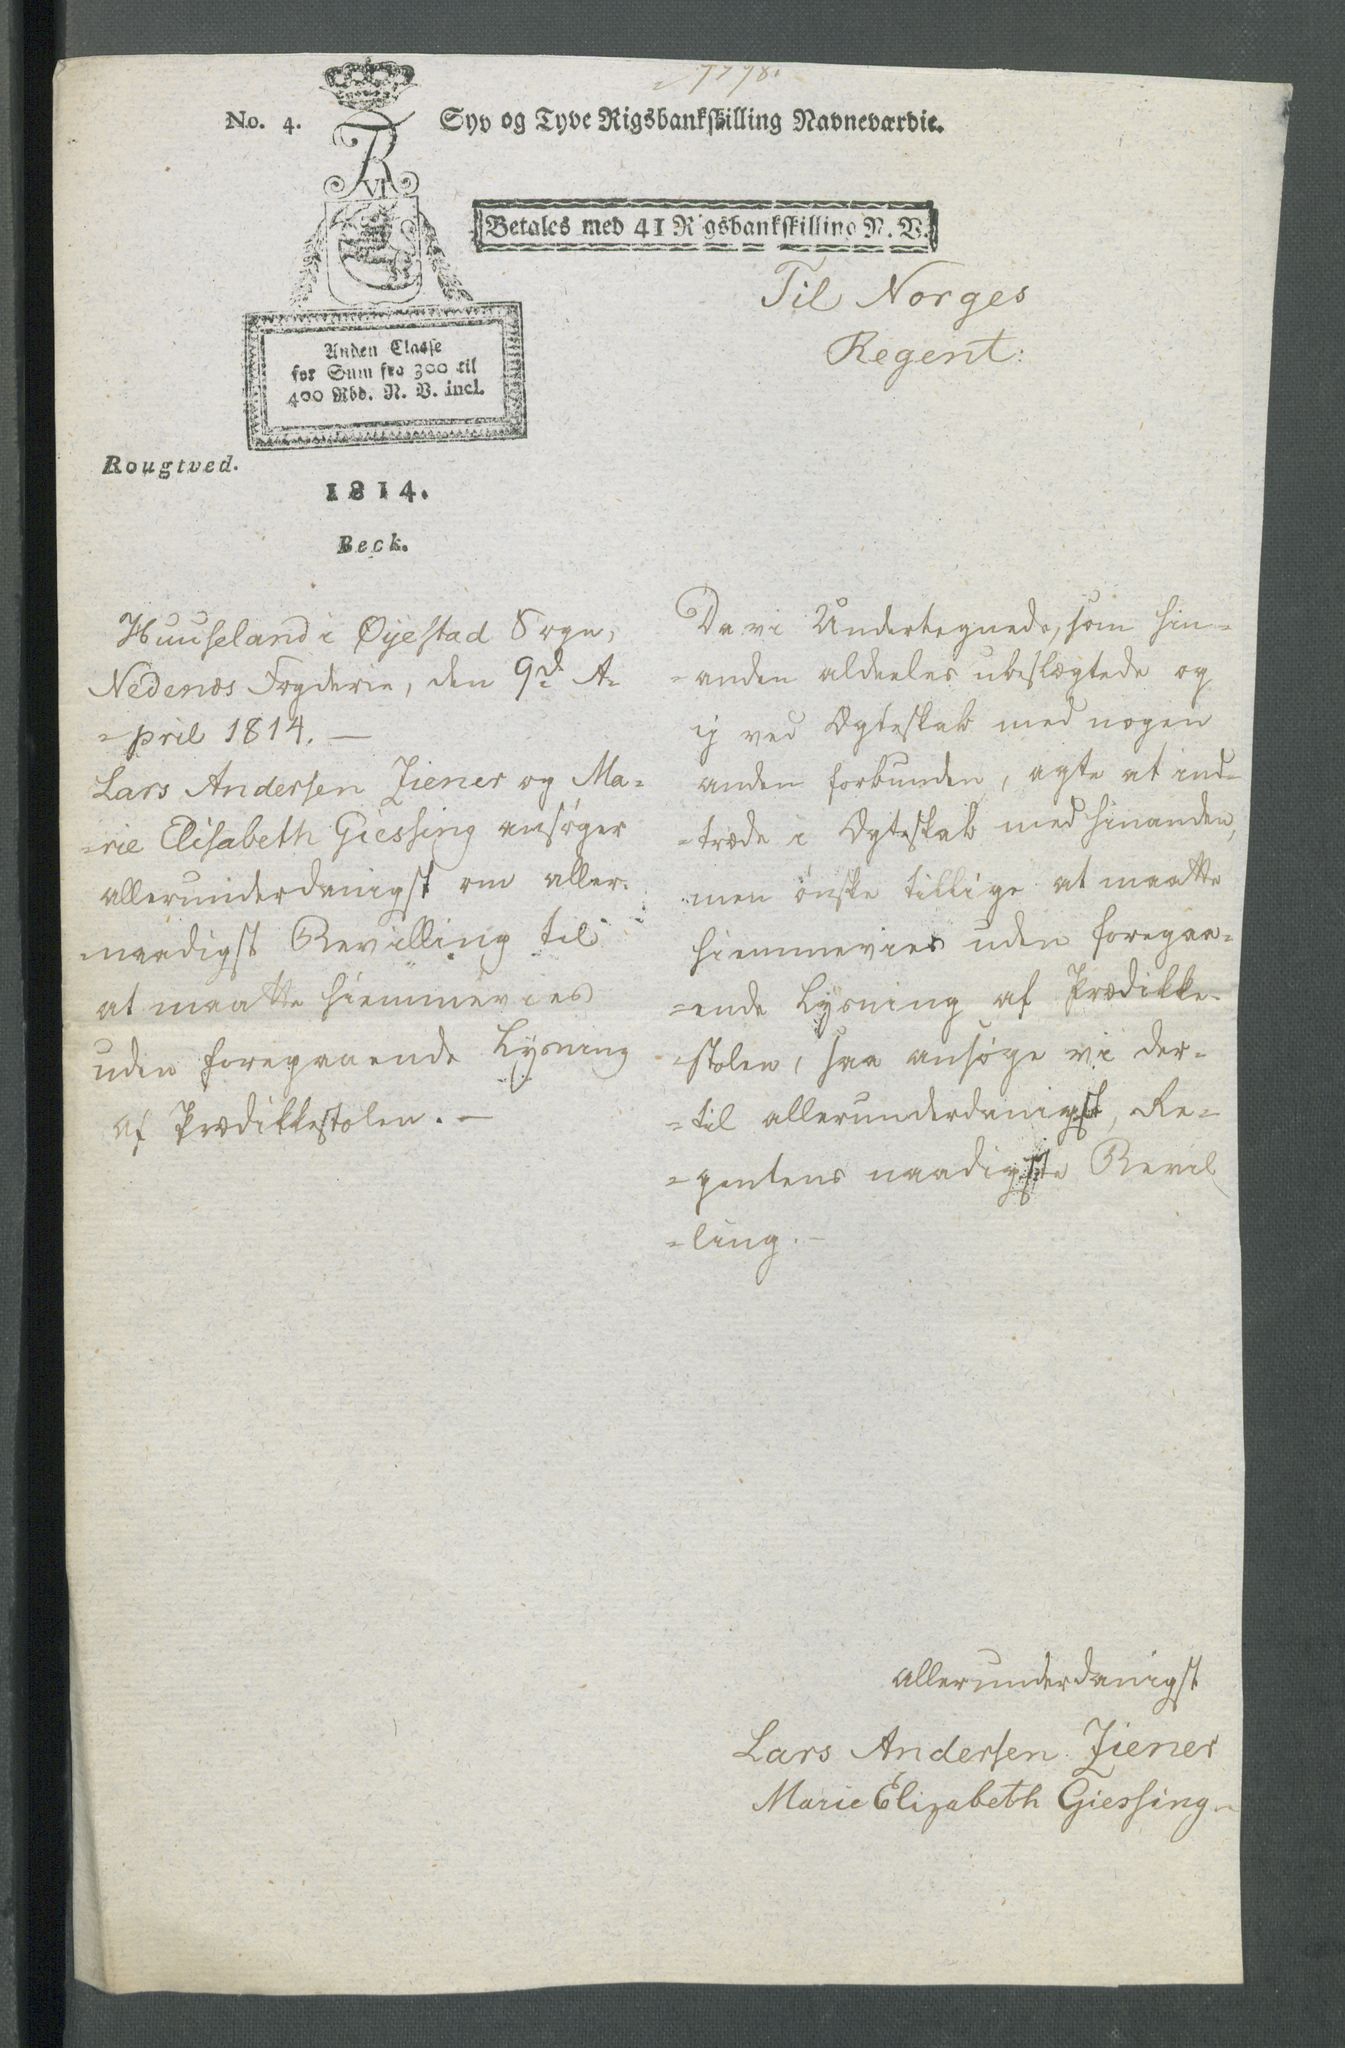 1778.
No. 4.
Syv og Tyve Rigsbankskilling Navneværdie.
Betales med 41 Rigsbankskilling N. V.
R
VI
Anden Classe
for Sum fra 300 til
400 Rbd. N. V. incl.
Rougtved.
1814.
Beck.
Til Norges
Regent:
Huuseland i Øyestad Sogn,
Nedenæs Fogderie, den 9de A-
-pril 1814. —
Lars Andersen Ziener og Ma-
-rie Elisabeth Giessing ansøger
allerunderdanigst om aller-
-naadigst Bevilling til
at maatte hiemmevies
uden foregaaende Lysning
af Prædikkestolen. —
Da vi Undertegnede, som hin-
-anden aldeeles ubeslægtede og
ej ved Ægteskab med nogen
anden forbunden, agte at ind-
-træde i Ægteskab med hinanden,
men ønske tillige at maatte
hiemmevies uden foregaa-
-ende Lysning af Prædikke-
-stolen, saa ansøge vi der-
-til allerunderdanigst, Re-
-gentens naadigste Bevil
-ling. —
allerunderdanigst
Lars Andersen Ziener
Marie Elizabeth Giessing